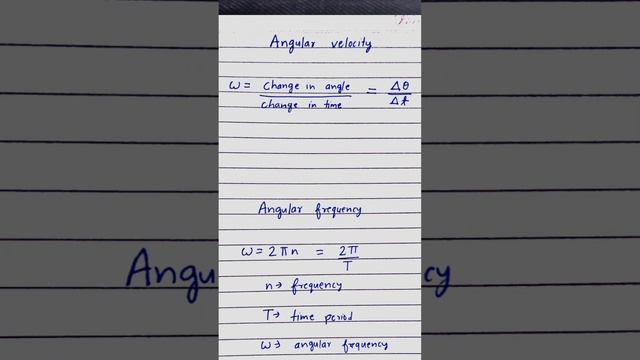 Angular velocity
ω = Change in angle / Change in time = Δθ / Δt
Angular frequency
ω = 2πn = 2π / T
n → frequency
T → time period
ω → angular frequency